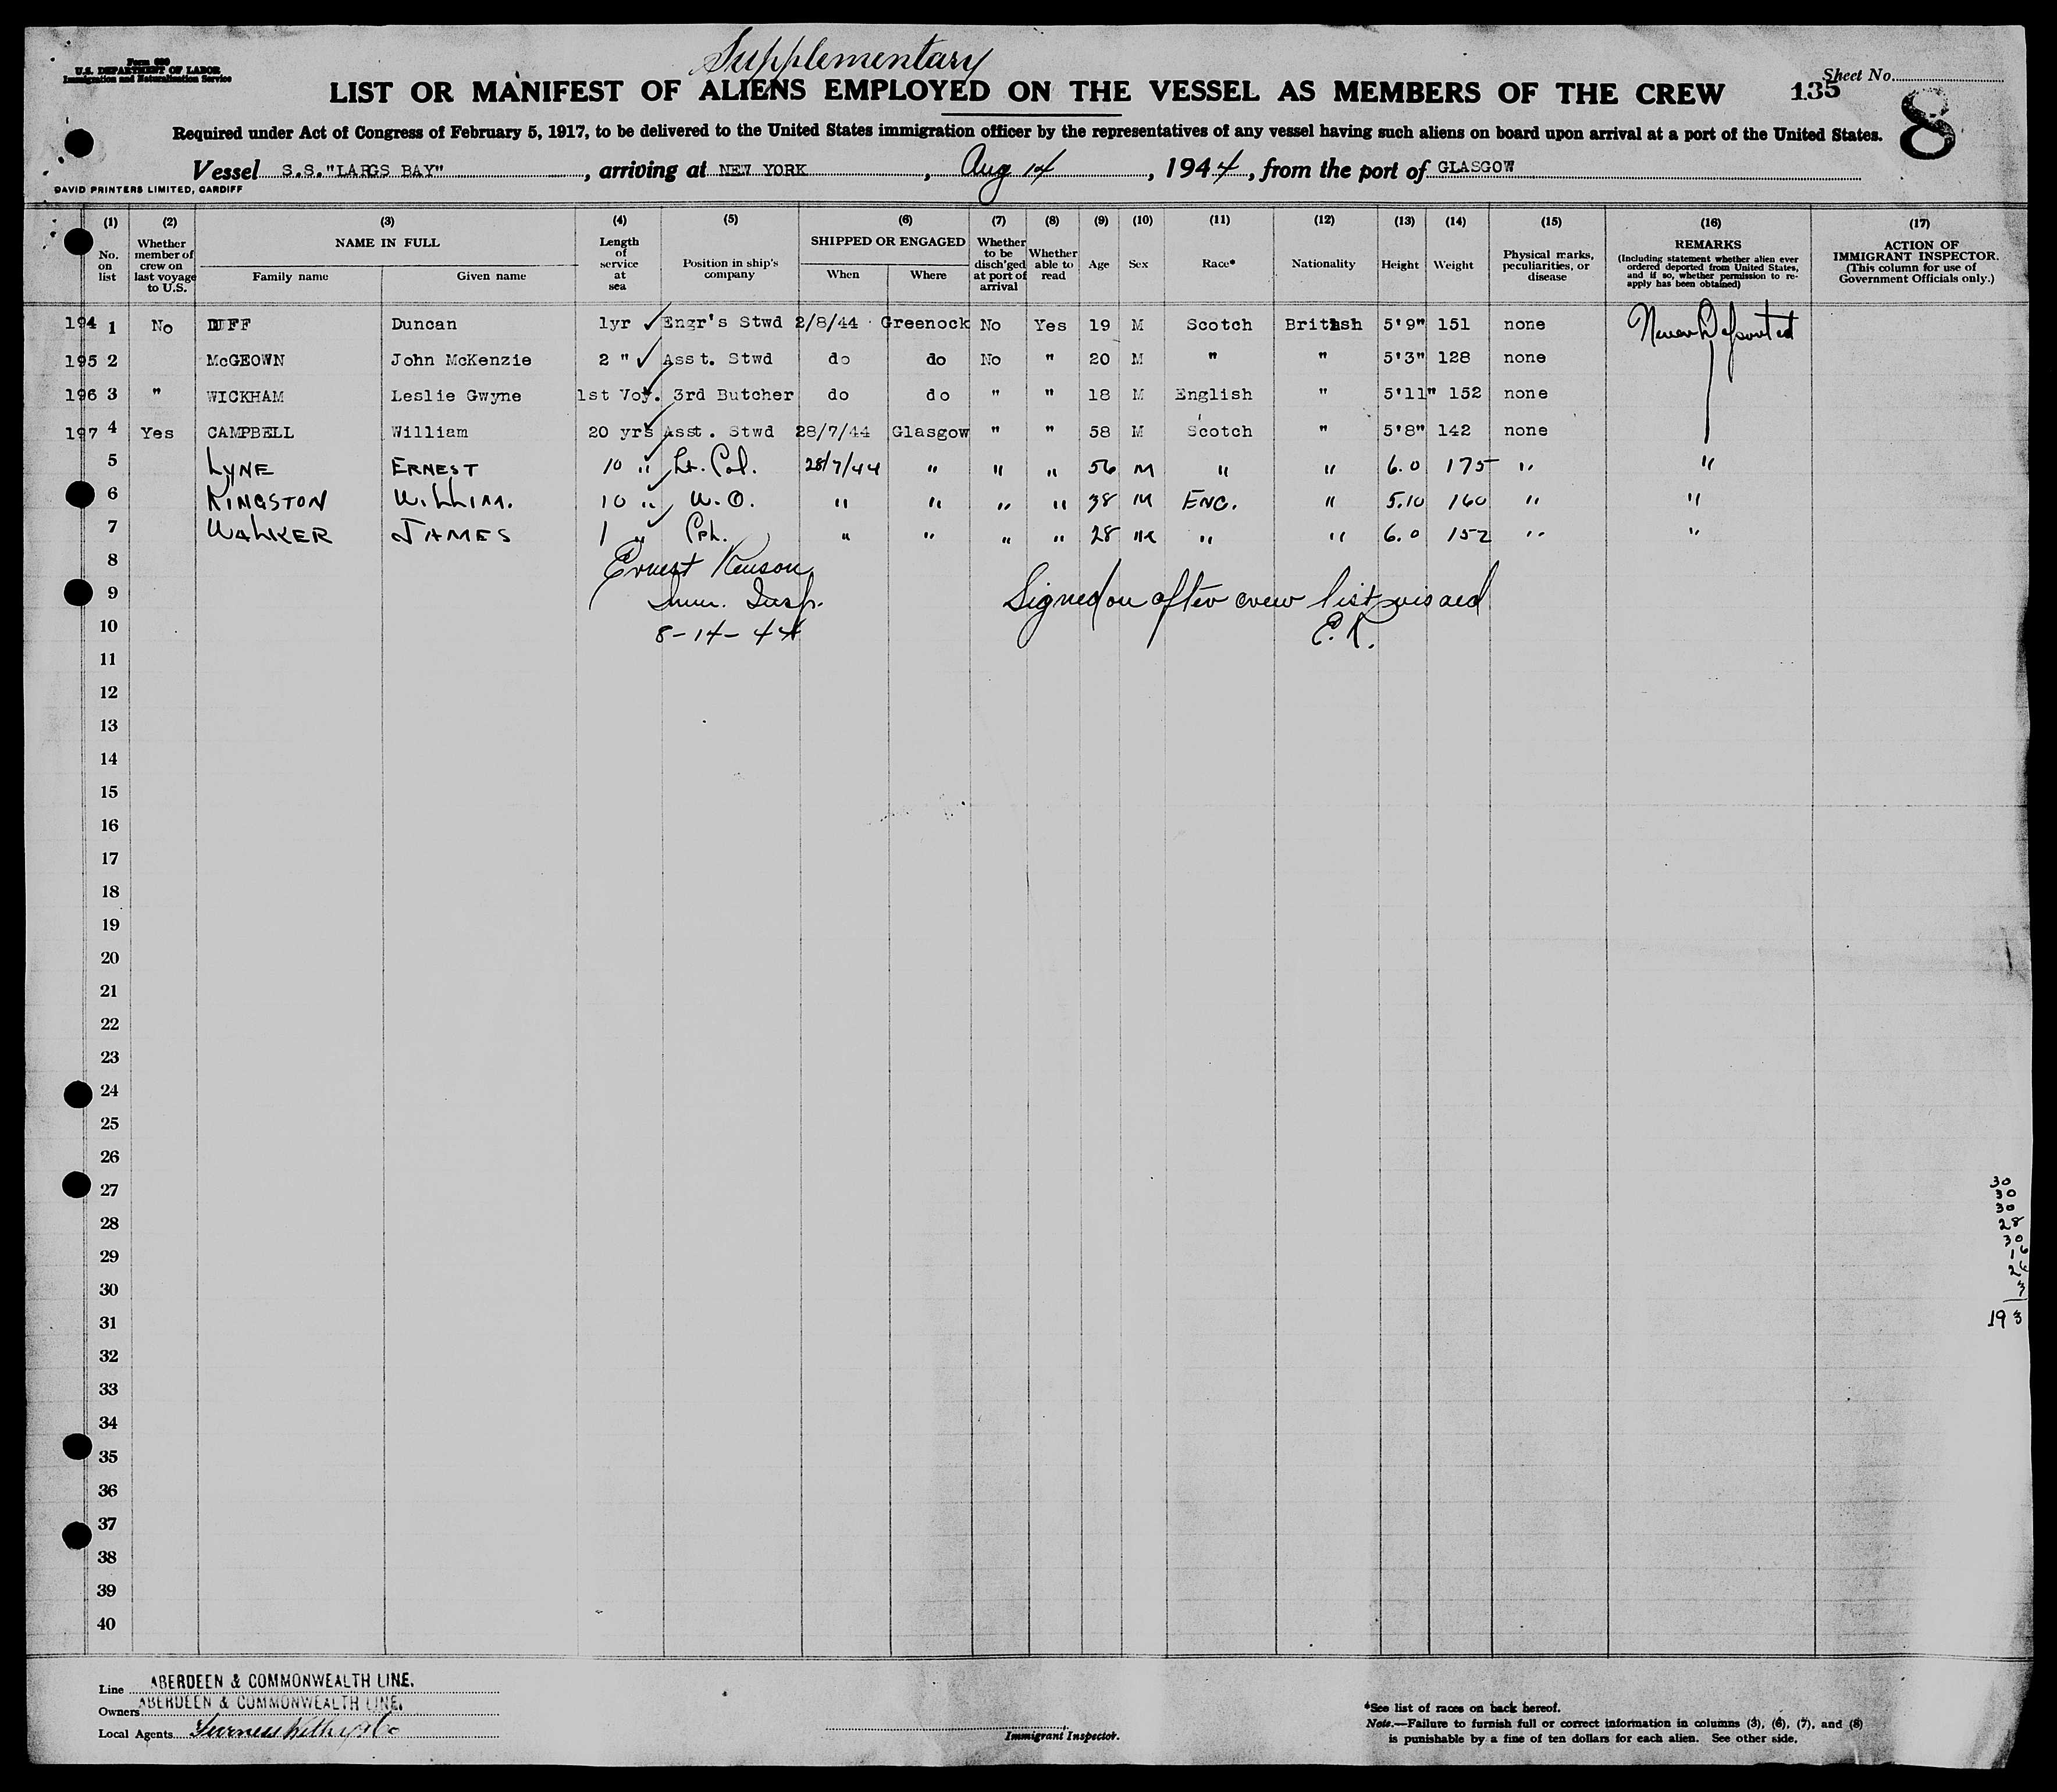 Supplementary
Form 680
U.S. DEPARTMENT OF LABOR
Immigration and Naturalization Service
Sheet No.
LIST OR MANIFEST OF ALIENS EMPLOYED ON THE VESSEL AS MEMBERS OF THE CREW
135
8
Required under Act of Congress of February 5, 1917, to be delivered to the United States immigration officer by the representatives of any vessel having such aliens on board upon arrival at a port of the United States.
Vessel S.S."LARGS BAY", arriving at NEW YORK, Aug 14, 1944, from the port of GLASGOW
DAVID PRINTERS LIMITED, CARDIFF
(1) (2) (3) (4) (5) (6) (7) (8) (9) (10) (11) (12) (13) (14) (15) (16) (17)
No. on list
Whether member of crew on last voyage to U.S.
NAME IN FULL
Family name Given name
Length of service at sea
Position in ship's company
SHIPPED OR ENGAGED
When Where
Whether to be disch'ged at port of arrival
Whether able to read
Age
Sex
Race*
Nationality
Height
Weight
Physical marks, peculiarities, or disease
REMARKS
(Including statement whether alien ever ordered deported from United States, and if so, whether permission to re-apply has been obtained)
ACTION OF IMMIGRANT INSPECTOR.
(This column for use of Government Officials only.)
194 1 No DUFF Duncan 1yr ✓ Engr's Stwd 2/8/44 Greenock No Yes 19 M Scotch British 5'9" 151 none Never Deported
195 2 McGEOWN John McKenzie 2 " ✓ Asst. Stwd do do No " 20 M " " 5'3" 128 none
196 3 " WICKHAM Leslie Gwyne 1st Voy. ✓ 3rd Butcher do do " " 18 M English " 5'11" 152 none
197 4 Yes CAMPBELL William 20 yrs ✓ Asst. Stwd 28/7/44 Glasgow " " 58 M Scotch " 5'8" 142 none
5 LYNE ERNEST 10 " ✓ Lt. Col. 28/7/44 " " " 56 M " " 6.0 175 " "
6 KINGSTON WILLIM. 10 " ✓ W.O. " " " " 38 M ENG. " 5.10 160 " "
7 WALKER JAMES 1 " ✓ Cpl. " " " " 28 M " " 6.0 152 " "
8
9
10
11
12
13
14
15
16
17
18
19
20
21
22
23
24
25
26
27
28
29
30
31
32
33
34
35
36
37
38
39
40
Ernest Kenson
Imm. Insp.
8-14-44
Signed on after crew list visaed
E.K.
30
30
30
28
30
16
26
3
193
Line ABERDEEN & COMMONWEALTH LINE.
Owners ABERDEEN & COMMONWEALTH LINE.
Local Agents Furness Withy & Co
Immigrant Inspector.
*See list of races on back hereof.
Note.—Failure to furnish full or correct information in columns (3), (6), (7), and (8)
is punishable by a fine of ten dollars for each alien. See other side.